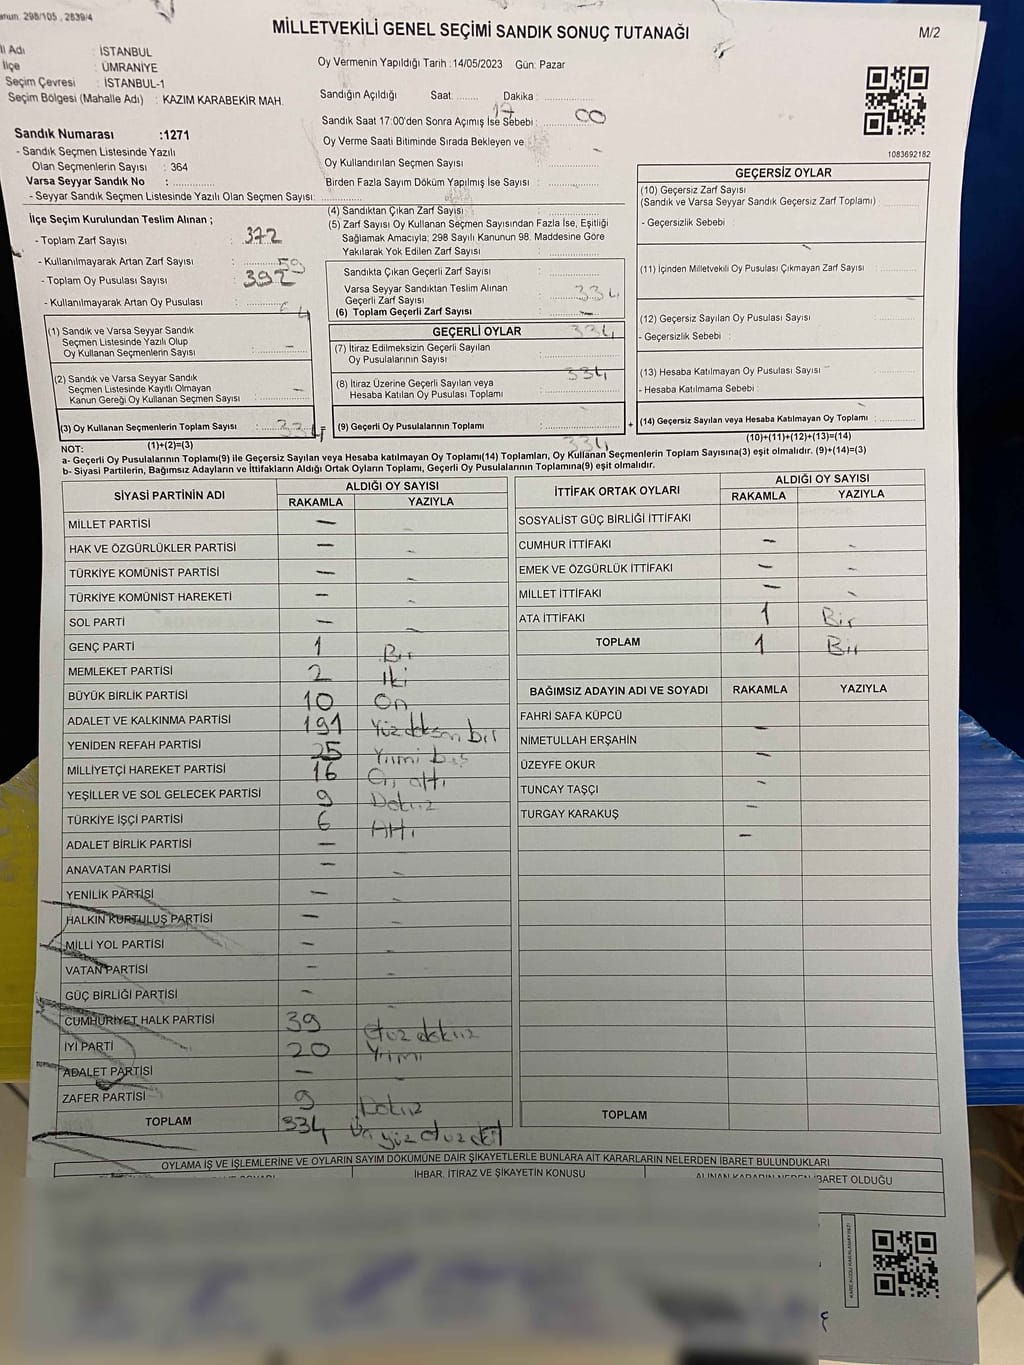 anun. 298/105 , 2839/4
MİLLETVEKİLİ GENEL SEÇİMİ SANDIK SONUÇ TUTANAĞI
M/2
İl Adı : İSTANBUL
İlçe : ÜMRANİYE
Seçim Çevresi : İSTANBUL-1
Seçim Bölgesi (Mahalle Adı) : KAZIM KARABEKİR MAH.
Oy Vermenin Yapıldığı Tarih :14/05/2023 Gün: Pazar
Sandığın Açıldığı Saat: ........ Dakika : ..............
17 00
Sandık Saat 17:00'den Sonra Açımış İse Sebebi :
Oy Verme Saati Bitiminde Sırada Bekleyen ve
Oy Kullandırılan Seçmen Sayısı
Birden Fazla Sayım Döküm Yapılmış İse Sayısı :
1083692182
Sandık Numarası :1271
- Sandık Seçmen Listesinde Yazılı
Olan Seçmenlerin Sayısı : 364
Varsa Seyyar Sandık No :
- Seyyar Sandık Seçmen Listesinde Yazılı Olan Seçmen Sayısı:
İlçe Seçim Kurulundan Teslim Alınan ;
- Toplam Zarf Sayısı : 372
- Kullanılmayarak Artan Zarf Sayısı : 59
- Toplam Oy Pusulası Sayısı : 392
- Kullanılmayarak Artan Oy Pusulası :
(1) Sandık ve Varsa Seyyar Sandık
Seçmen Listesinde Yazılı Olup
Oy Kullanan Seçmenlerin Sayısı : –
(2) Sandık ve Varsa Seyyar Sandık
Seçmen Listesinde Kayıtlı Olmayan
Kanun Gereği Oy Kullanan Seçmen Sayısı : –
(3) Oy Kullanan Seçmenlerin Toplam Sayısı : 334
(1)+(2)=(3)
(4) Sandıktan Çıkan Zarf Sayısı
(5) Zarf Sayısı Oy Kullanan Seçmen Sayısından Fazla İse, Eşitliği
Sağlamak Amacıyla; 298 Sayılı Kanunun 98. Maddesine Göre
Yakılarak Yok Edilen Zarf Sayısı :
Sandıkta Çıkan Geçerli Zarf Sayısı :
Varsa Seyyar Sandıktan Teslim Alınan
Geçerli Zarf Sayısı : 334
(6) Toplam Geçerli Zarf Sayısı : –
GEÇERLİ OYLAR 334
(7) İtiraz Edilmeksizin Geçerli Sayılan
Oy Pusulalarının Sayısı :
334
(8) İtiraz Üzerine Geçerli Sayılan veya
Hesaba Katılan Oy Pusulası Toplamı :
= (9) Geçerli Oy Pusulalarının Toplamı :
334
GEÇERSİZ OYLAR
(10) Geçersiz Zarf Sayısı
(Sandık ve Varsa Seyyar Sandık Geçersiz Zarf Toplamı) :
- Geçersizlik Sebebi :
(11) İçinden Milletvekili Oy Pusulası Çıkmayan Zarf Sayısı :
(12) Geçersiz Sayılan Oy Pusulası Sayısı :
- Geçersizlik Sebebi :
(13) Hesaba Katılmayan Oy Pusulası Sayısı :
- Hesaba Katılmama Sebebi :
+ (14) Geçersiz Sayılan veya Hesaba Katılmayan Oy Toplamı :
(10)+(11)+(12)+(13)=(14)
NOT:
a- Geçerli Oy Pusulasının Toplamı(9) ile Geçersiz Sayılan veya Hesaba katılmayan Oy Toplamı(14) Toplamları, Oy Kullanan Seçmenlerin Toplam Sayısına(3) eşit olmalıdır. (9)+(14)=(3)
b- Siyasi Partilerin, Bağımsız Adayların ve İttifakların Aldığı Ortak Oyların Toplamı, Geçerli Oy Pusulalarının Toplamına(9) eşit olmalıdır.
SİYASİ PARTİNİN ADI
ALDIĞI OY SAYISI
RAKAMLA YAZIYLA
MİLLET PARTİSİ –
HAK VE ÖZGÜRLÜKLER PARTİSİ –
TÜRKİYE KOMÜNİST PARTİSİ –
TÜRKİYE KOMÜNİST HAREKETİ –
SOL PARTİ –
GENÇ PARTİ 1 Bir
MEMLEKET PARTİSİ 2 İki
BÜYÜK BİRLİK PARTİSİ 10 On
ADALET VE KALKINMA PARTİSİ 191 Yüz doksan bir
YENİDEN REFAH PARTİSİ 25 Yirmi beş
MİLLİYETÇİ HAREKET PARTİSİ 16 On altı
YEŞİLLER VE SOL GELECEK PARTİSİ 9 Dokuz
TÜRKİYE İŞÇİ PARTİSİ 6 Altı
ADALET BİRLİK PARTİSİ –
ANAVATAN PARTİSİ –
YENİLİK PARTİSİ –
HALKIN KURTULUŞ PARTİSİ –
MİLLİ YOL PARTİSİ –
VATAN PARTİSİ –
GÜÇ BİRLİĞİ PARTİSİ –
CUMHURİYET HALK PARTİSİ 39 otuz dokuz
İYİ PARTİ 20 Yirmi
ADALET PARTİSİ –
ZAFER PARTİSİ 9 Dokuz
TOPLAM 334 Üç yüz otuz dört
İTTİFAK ORTAK OYLARI
ALDIĞI OY SAYISI
RAKAMLA YAZIYLA
SOSYALİST GÜÇ BİRLİĞİ İTTİFAKI
CUMHUR İTTİFAKI –
EMEK VE ÖZGÜRLÜK İTTİFAKI –
MİLLET İTTİFAKI –
ATA İTTİFAKI 1 Bir
TOPLAM 1 Bir
BAĞIMSIZ ADAYIN ADI VE SOYADI RAKAMLA YAZIYLA
FAHRİ SAFA KÜPCÜ
NİMETULLAH ERŞAHİN –
ÜZEYFE OKUR –
TUNCAY TAŞÇI –
TURGAY KARAKUŞ –
TOPLAM
OYLAMA İŞ VE İŞLEMLERİNE VE OYLARIN SAYIM DÖKÜMÜNE DAİR ŞİKAYETLERLE BUNLARA AİT KARARLARIN NELERDEN İBARET BULUNDUKLARI
İHBAR, İTİRAZ VE ŞİKAYETİN KONUSU
ALINAN KARARIN NEDEN İBARET OLDUĞU
KARE KODU KARALAMAYINIZ!